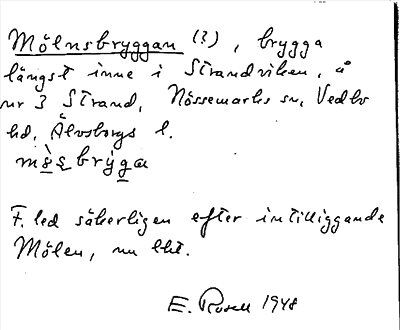 Mölnsbryggan (?), brygga
längst inne i Strandviken, å
nr 3 Strand, Nössemarks sn, Vedbo
hd, Älvsborgs l.
brýga
F. led säkerligen efter intilliggande
Mölen, nu
E. Rosell 1948